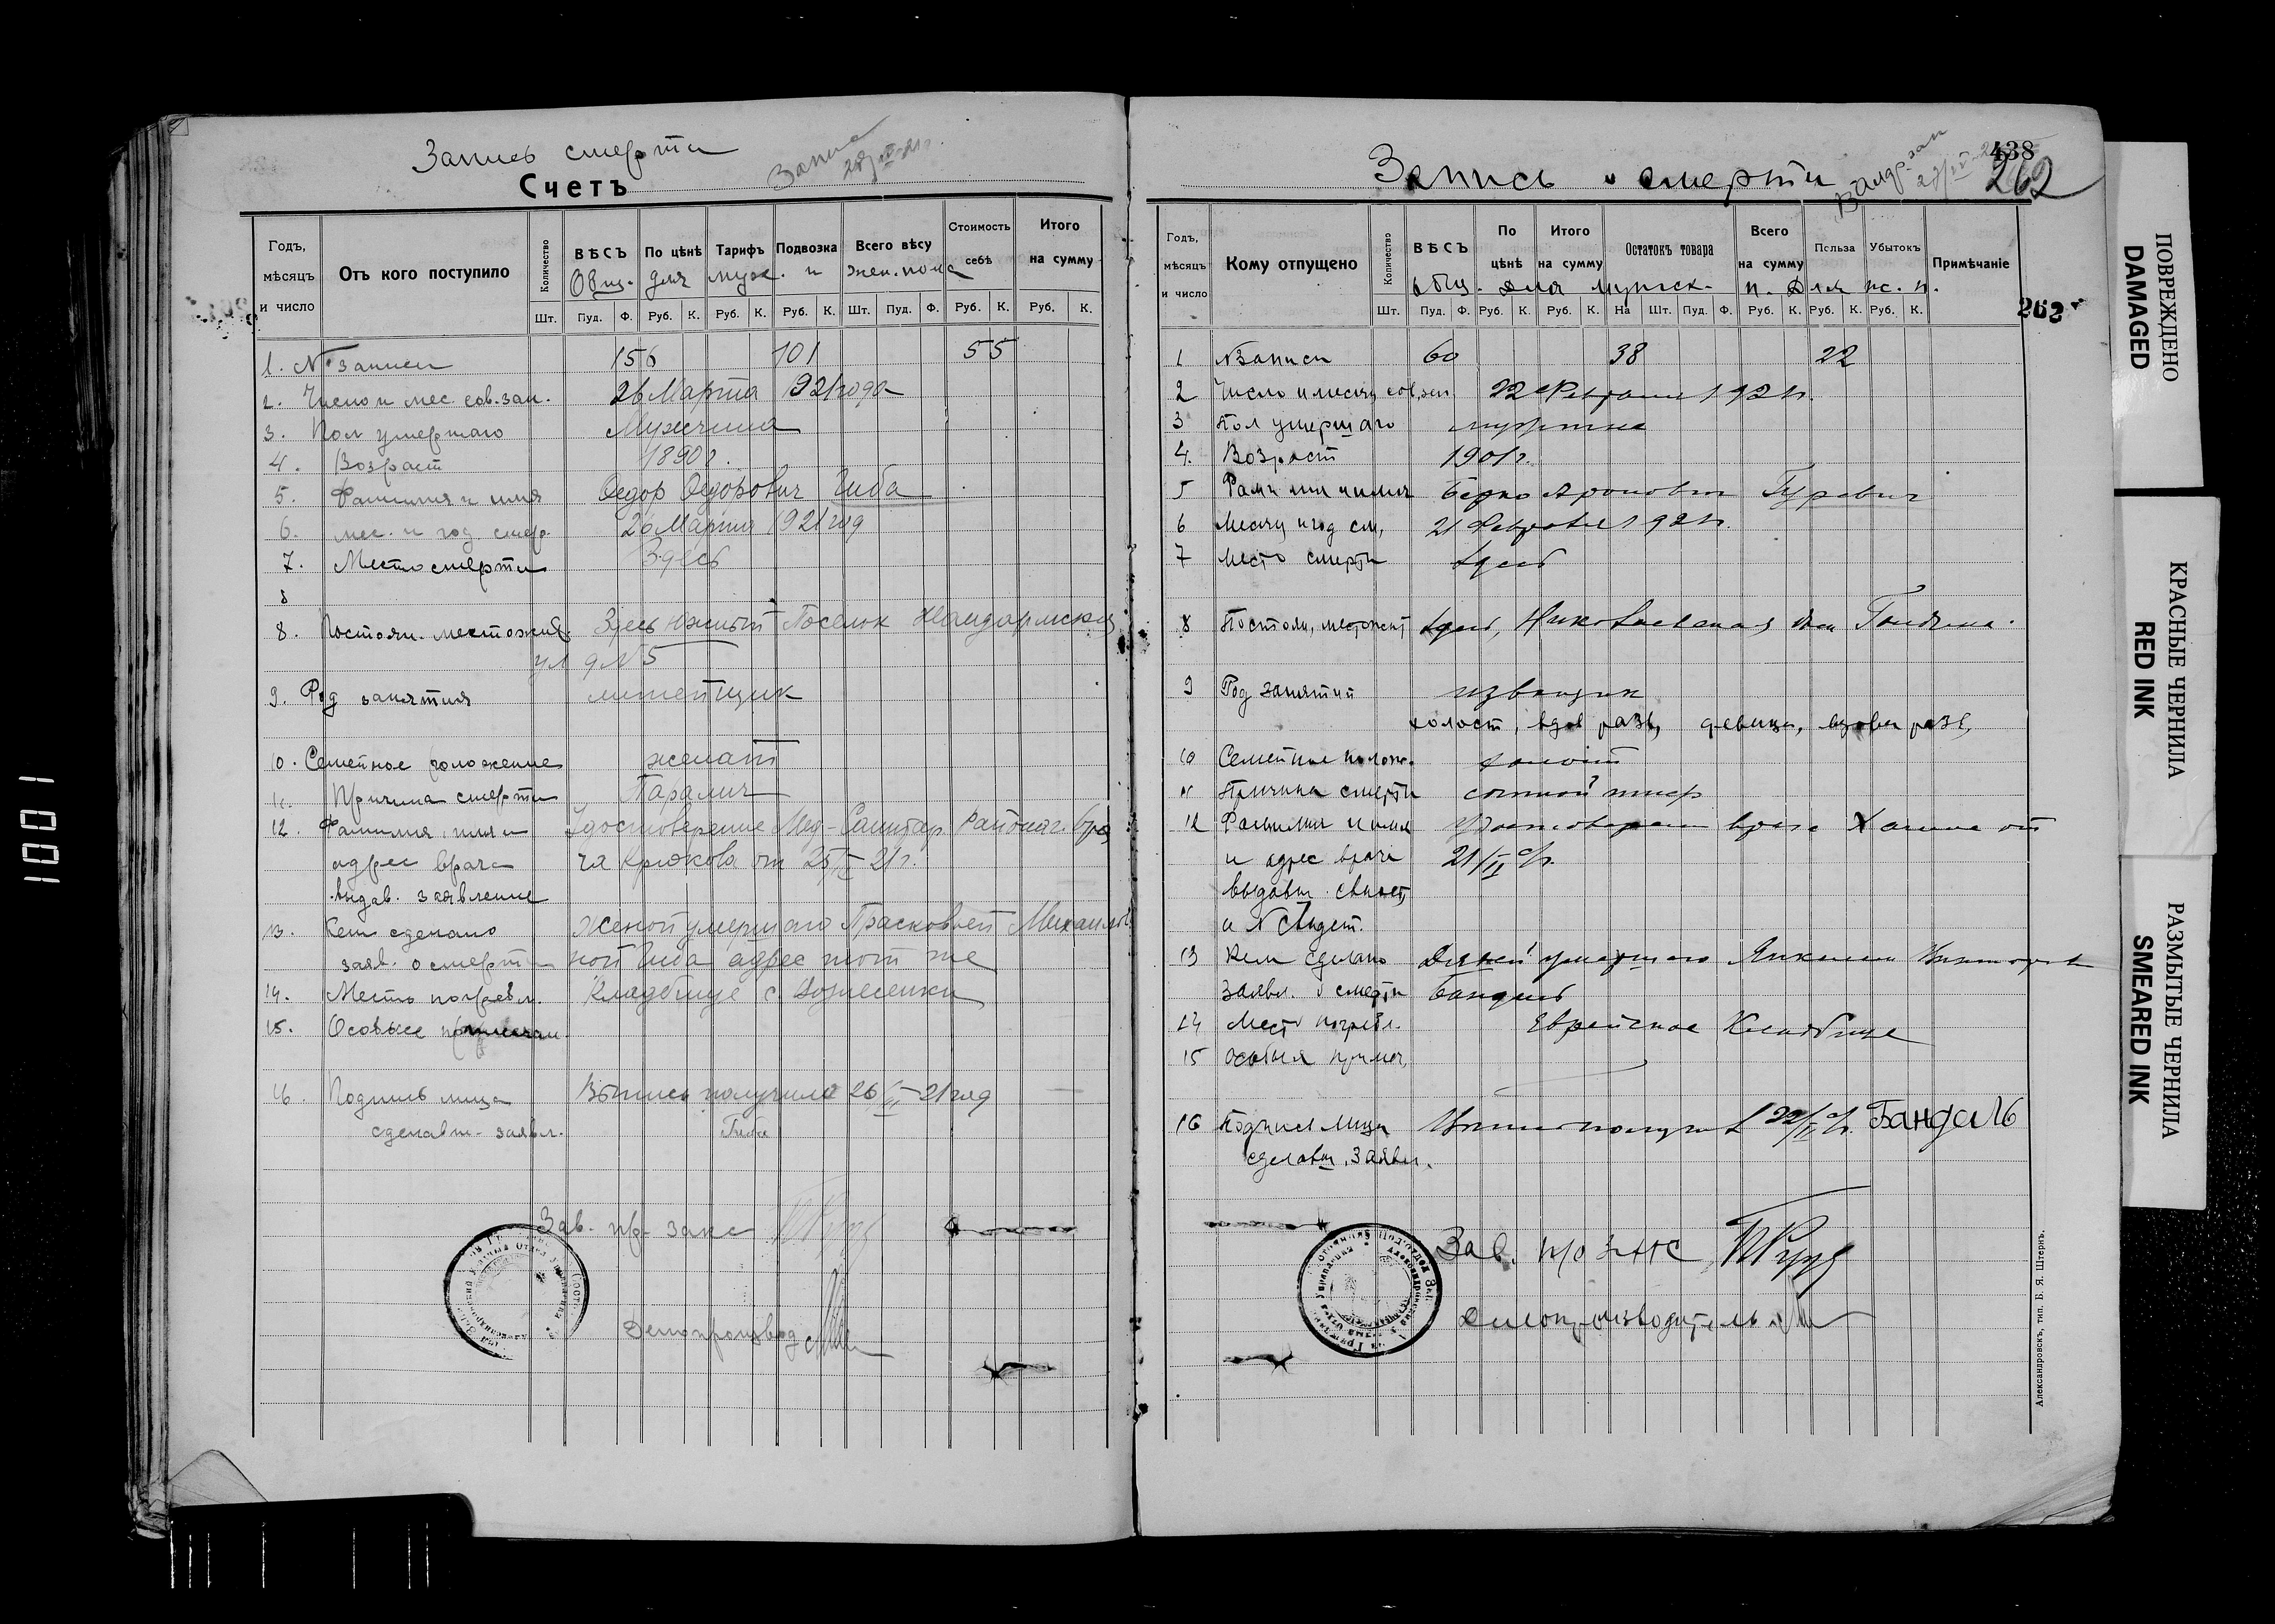 Запись смерти
Счетъ
Годъ, мѣсяцъ и число
Отъ кого поступило
Количество
ВѢСЪ
По цѣнѣ
Тарифъ
Подвозка
Всего вѣсу
Стоимость себѣ
Итого на сумму
Общ. для муж. и жен. пола
Шт. Пуд. Ф. Руб. К. Руб. К. Руб. К. Шт. Пуд. Ф. Руб. К. Руб. К.
1. № записи 156 101 55
2. Число и мес. сов. зап. 26 Марта 1921 года
3. Пол умершаго Мужчина
4. Возраст 1890 г.
5. Фамилия и имя Федор Федорович Гиба
6. мес. и год. смер. 26 Марта 1921 год
7. Место смерти Здесь
8
8. Постоян. местожит. Здесь Южный Поселок Жандармская
ул д № 5
9. Род занятия литейщик
10. Семейное положение женат
11. Причина смерти Паралич
12. Фамилия, имя и Удостоверение Мед-Санитар. Районаг. Вра
адрес врача ча Крюкова от 25/III-21 г.
выдав. заявление
13. Кем сделано женой умершаго Прасковьей Михайлов
заяв. о смерти ной Гиба адрес тот же
14. Место погребл. Кладбище с. Вознесенки
15. Особые примечан.
16. Подпись лица Выпись получила 26/III-21 год
сделавш. заявл. Гиба
Зав. пр- загс
Делопроизвод
Запись смерти
438
262
Годъ, мѣсяцъ и число
Кому отпущено
Количество
ВѢСЪ
По цѣнѣ
Итого на сумму
Остатокъ товара
Всего на сумму
Польза
Убытокъ
Примѣчаніе
общ. для мужск. п. для ж. п.
Шт. Пуд. Ф. Руб. К. Руб. К. На Шт. Пуд. Ф. Руб. К. Руб. К. Руб. К.
262
1 № записи 60 38 22
2 Число и месяц сов. зап 22 Февраля 1921 г.
3 Пол умершаго мужчина
4. Возраст 1901 г.
5 Фамилия и имя Берко Аронович Гуревич
6 Месяц и год см, 21 Февраля 1921 г.
7 Место смерти здесь
8 Постоян, местожит здесь, Николаевская
9 Род занятий извощик
холост, вдов разв, девица, вдова разв,
10 Семейное полож. холост
11 Причина смерти сыпной тиф
12 Фамилия и имя Удостоверение врача от
и адрес врача 21/II с/г.
выдавш. свидет,
и № свидет.
13 Кем сделано Дядей умершаго
заявл. о смерти Бандель
14 Место погребл. Еврейское Кладбище
15 Особыя примеч,
16 Подпись лица Выпись получил 22/II с/г. Бандаль
сделавш. заявл.
Зав. п/о ЗАГС
Делопроизводитель
Александровскъ, тип. Б. Я. Штернъ.
ПОВРЕЖДЕНО
DAMAGED
КРАСНЫЕ ЧЕРНИЛА
RED INK
РАЗМЫТЫЕ ЧЕРНИЛА
SMEARED INK
1001